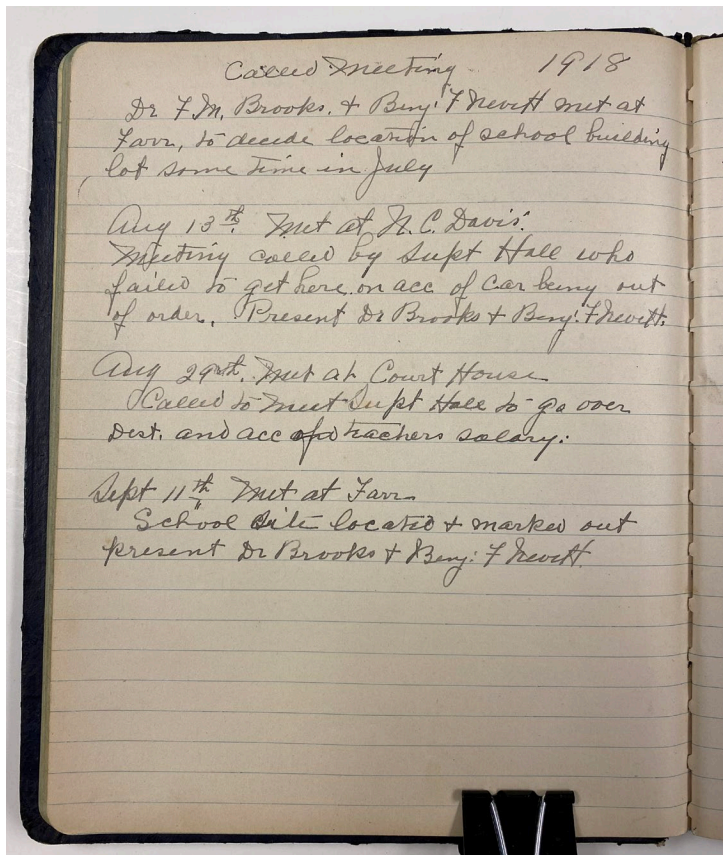 Called Meeting 1918
Dr F. M. Brooks. & Benj. F Nevitt met at
Farr, to decide location of school building
lot some time in July
Aug 13th. Met at N. C. Davis.
Meeting called by Supt Hall who
failed to get here on acc of car being out
of order. Present Dr Brooks & Benj. F Nevitt.
Aug 29th. Met at Court House
Called to Meet Supt Hall to go over
Dist. and acc of teachers salary.
Sept 11th Met at Farr
School Site located & marked out
present Dr Brooks & Benj. F Nevitt.